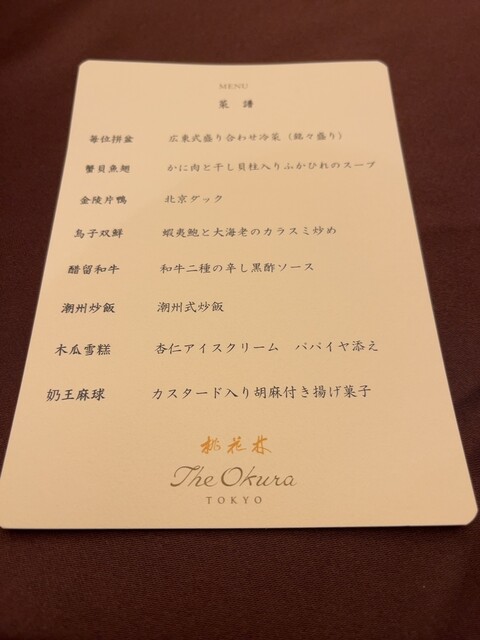 MENU
菜譜
每位拼盆 広東式盛り合わせ冷菜（銘々盛り）
蟹貝魚翅 かに肉と干し貝柱入りふかひれのスープ
金陵片鴨 北京ダック
烏子双鮮 蝦夷鮑と大海老のカラスミ炒め
醋留和牛 和牛二種の辛し黒酢ソース
潮州炒飯 潮州式炒飯
木瓜雪糕 杏仁アイスクリーム パパイヤ添え
奶王麻球 カスタード入り胡麻付き揚げ菓子
桃花林
The Okura
TOKYO